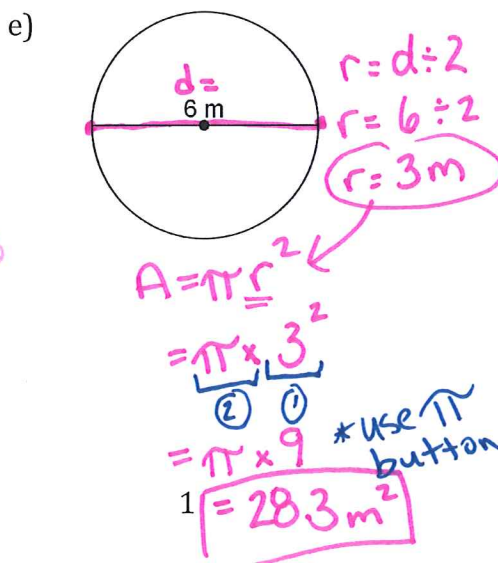 e)
d=
6 m
r=d÷2
r=6÷2
r=3m
A=πr²
=π×3²
② ①
=π×9
*use π
button
1
=28.3m²